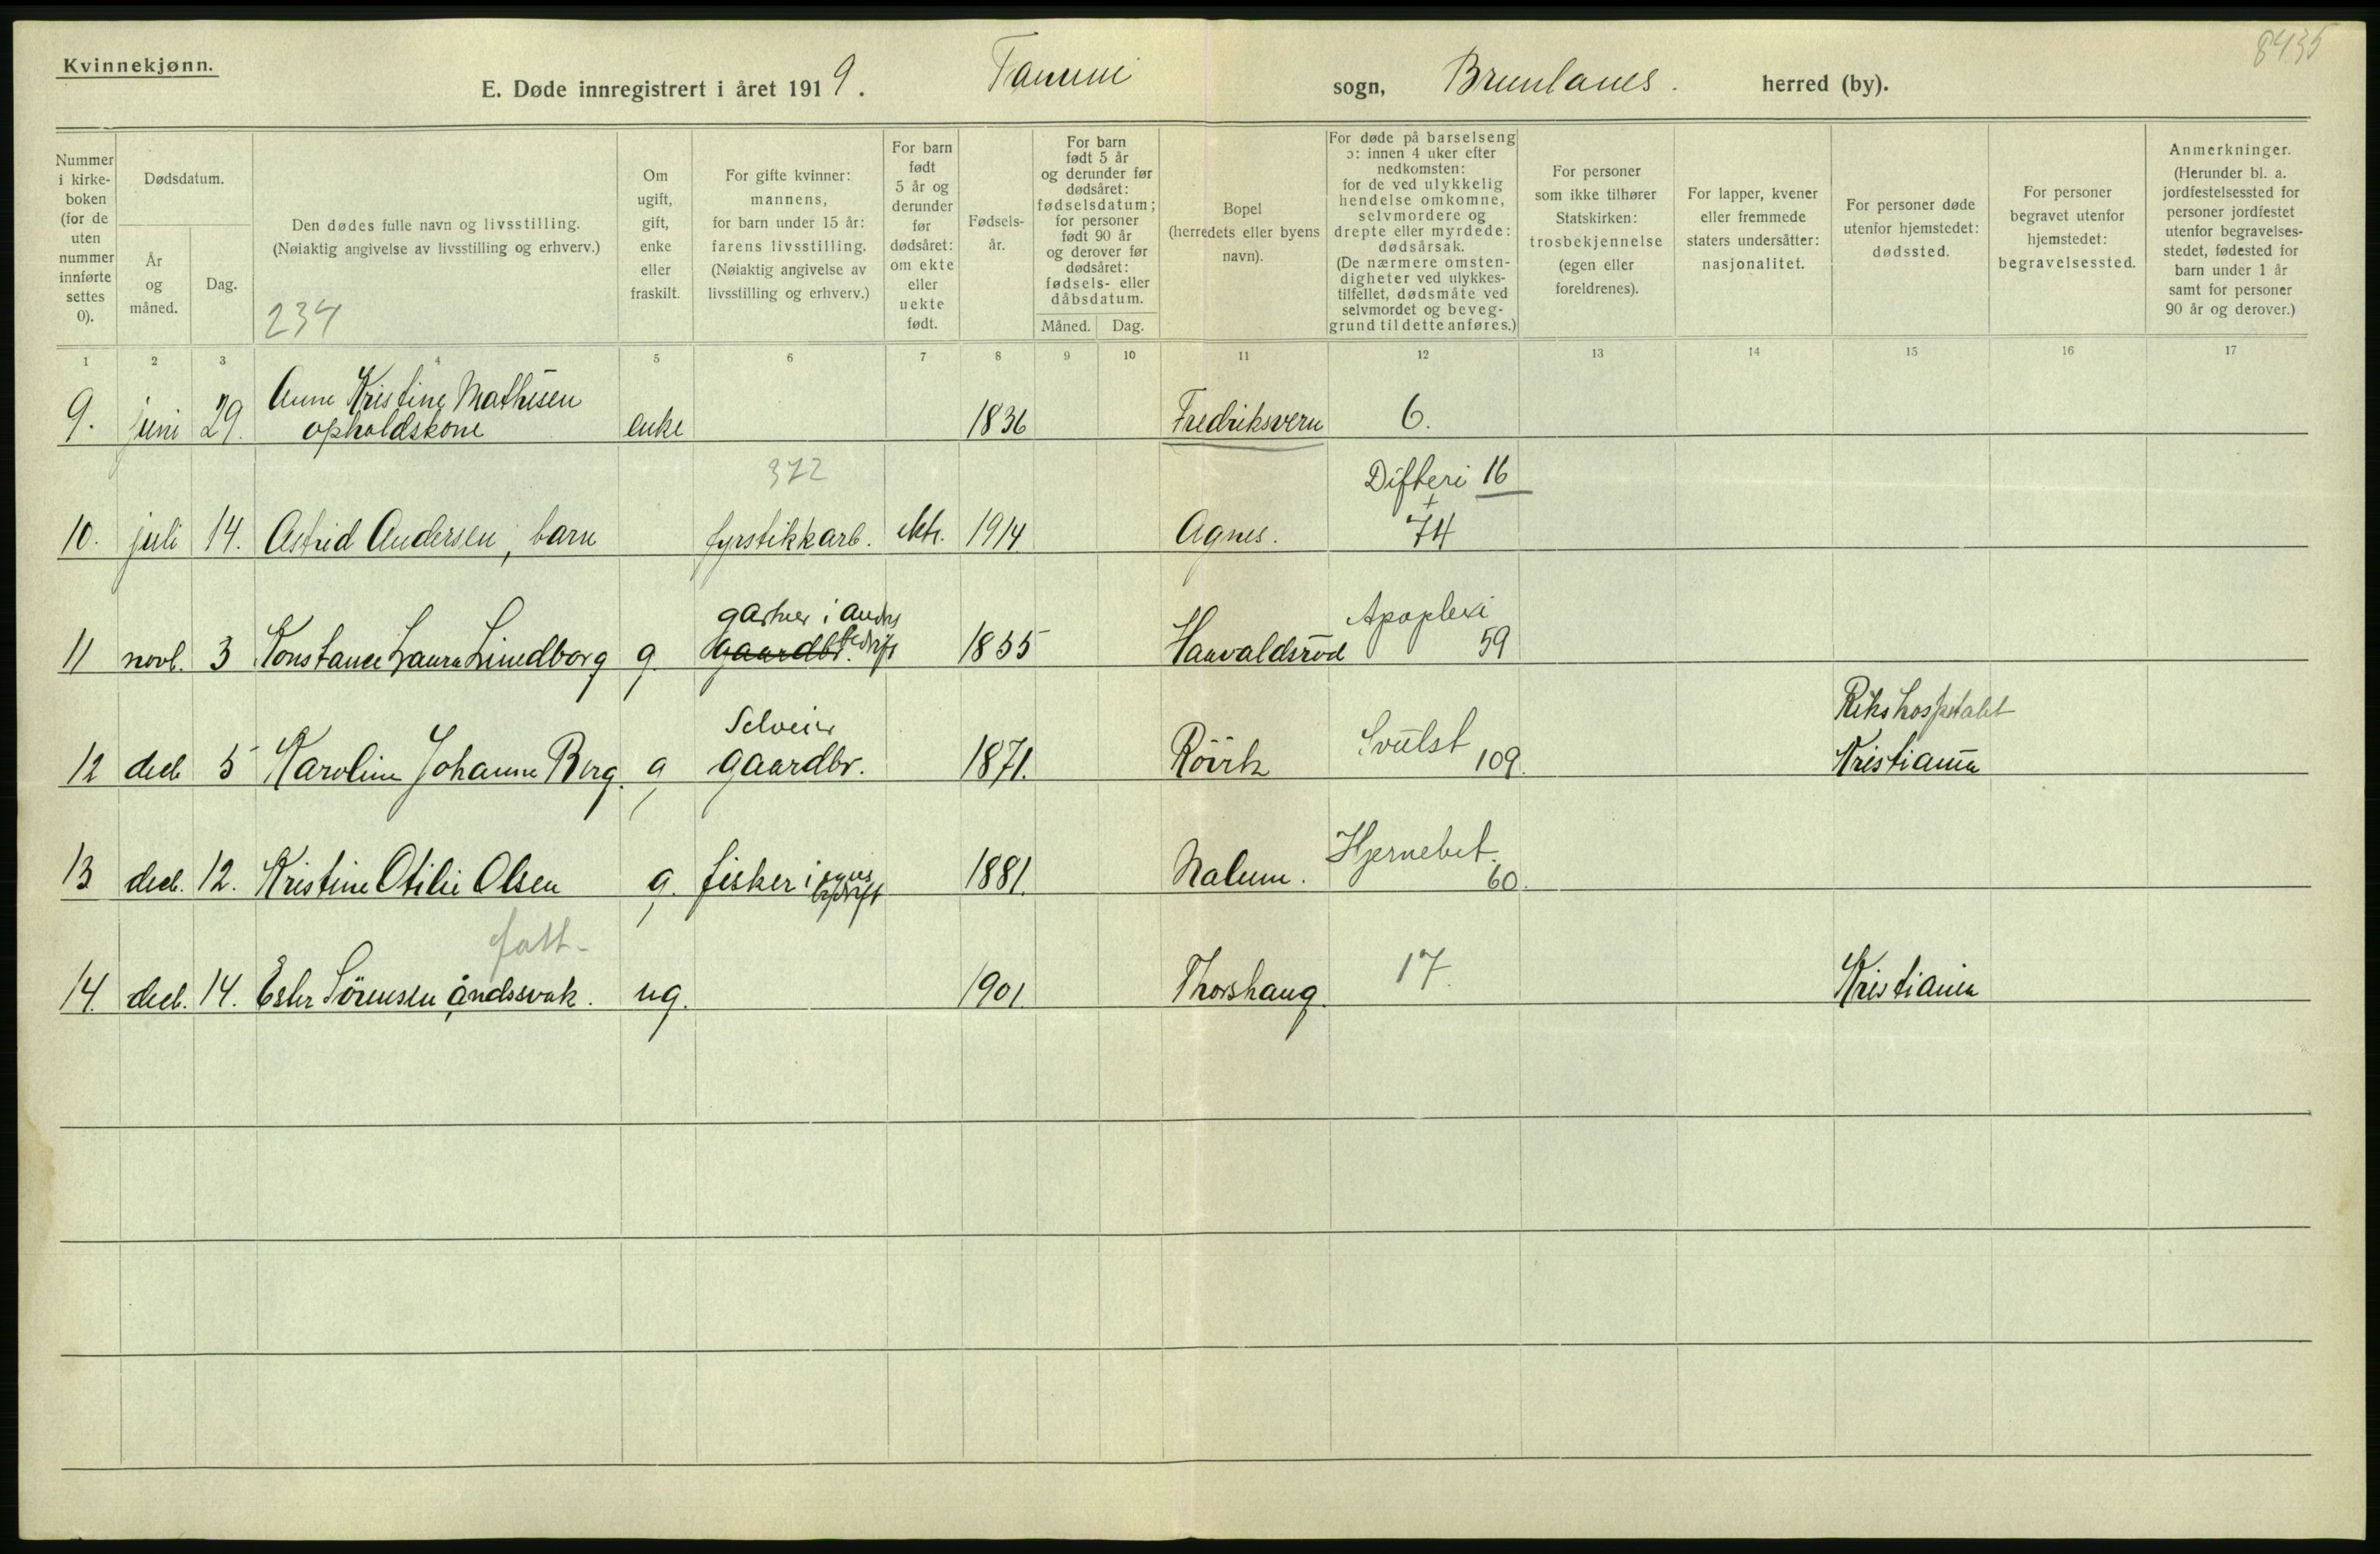 8435
Kvinnekjønn.
E. Døde innregistrert i året 1919. Tanum sogn, Brunlanes. herred (by).
Nummer i kirke-boken (for de uten nummer innførte settes 0).
Dødsdatum.
År og måned.
Dag.
Den dødes fulle navn og livsstilling.
(Nøiaktig angivelse av livsstilling og erhverv.)
234
Om ugift, gift, enke eller fraskilt.
For gifte kvinner: mannens, for barn under 15 år: farens livsstilling. (Nøiaktig angivelse av livsstilling og erhverv.)
For barn født 5 år og derunder før dødsåret: om ekte eller uekte født.
Fødsels-år.
For barn født 5 år og derunder før dødsåret: fødselsdatum; for personer født 90 år og derover før dødsåret: fødsels- eller dåbsdatum.
Måned. Dag.
Bopel (herredets eller byens navn).
For døde på barselseng ɔ: innen 4 uker efter nedkomsten: for de ved ulykkelig hendelse omkomne, selvmordere og drepte eller myrdede: dødsårsak. (De nærmere omsten-digheter ved ulykkes-tilfellet, dødsmåte ved selvmordet og beveg-grund til dette anføres.)
For personer som ikke tilhører Statskirken: trosbekjennelse (egen eller foreldrenes).
For lapper, kvener eller fremmede staters undersåtter: nasjonalitet.
For personer døde utenfor hjemstedet: dødssted.
For personer begravet utenfor hjemstedet: begravelsessted.
Anmerkninger. (Herunder bl. a. jordfestelsessted for personer jordfestet utenfor begravelses-stedet, fødested for barn under 1 år samt for personer 90 år og derover.)
1 2 3 4 5 6 7 8 9 10 11 12 13 14 15 16 17
Anne Kristine Mathisen
9. juni 29. opholdskone enke 1836 Fredriksvern 6.
372 Difteri 16
+
10. juli 14. Astrid Andersen, barn fyrstikkarb. ekte. 1914 Agnes. 74
gartner i andres bedrift Apoplexi
11 novb. 3 Konstance Laura Lindborg g. gaardbr. 1855 Havaldsröd 59
Selveier Svulst Rikshospitalet
12 decb 5 Karoline Johanne Berg. g gaardbr. 1871. Röirk 109. Kristiania
Hjernebet.
13 decb. 12. Kristine Otilie Olsen g. fisker i egnes bedrift 1881. Nalum. 60.
fatt-
14. decb. 14. Ester Sörensen åndssvak. ug. 1901. Thorshaug. 17. Kristiania